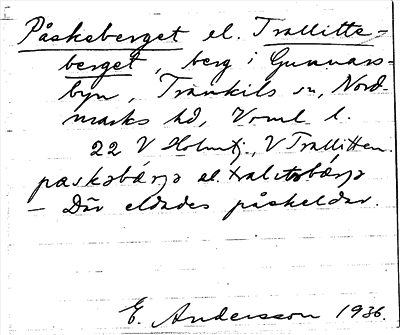 Påskaberget el. Trallitte-
berget, berg i Gunnars-
byn, Trankils sn, Nord-
marks hd, Vrml. l.
22 V Holmtj., V Trallitten.
paskabárja el. tralitabárja
— Där eldades påskeldar.
E. Andersson 1936.